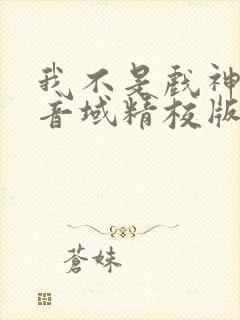 我不是戏神
音域精校版
蒼妹